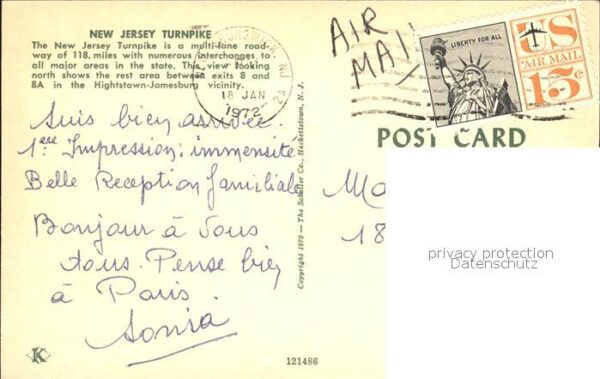 NEW JERSEY TURNPIKE
The New Jersey Turnpike is a multi-lane road-
way of 118 miles with numerous interchanges to
all major areas in the state. This view looking
north shows the rest area between exits 8 and
8A in the Hightstown-Jamesburg vicinity.
BRUNSWICK, NJ
PM
18 JAN
1972
AIR
MAIL
LIBERTY FOR ALL
US
AIR MAIL
15c
POST CARD
Suis bien arrivée.
1ère Impression: immensité
Belle Reception familiale
Bonjour à Vous
tous. Pense bien
à Paris.
Sonia
Mo
18
privacy protection
Datenschutz
Copyright 1970 - The Scheller Co., Hackettstown, N. J.
K
121486